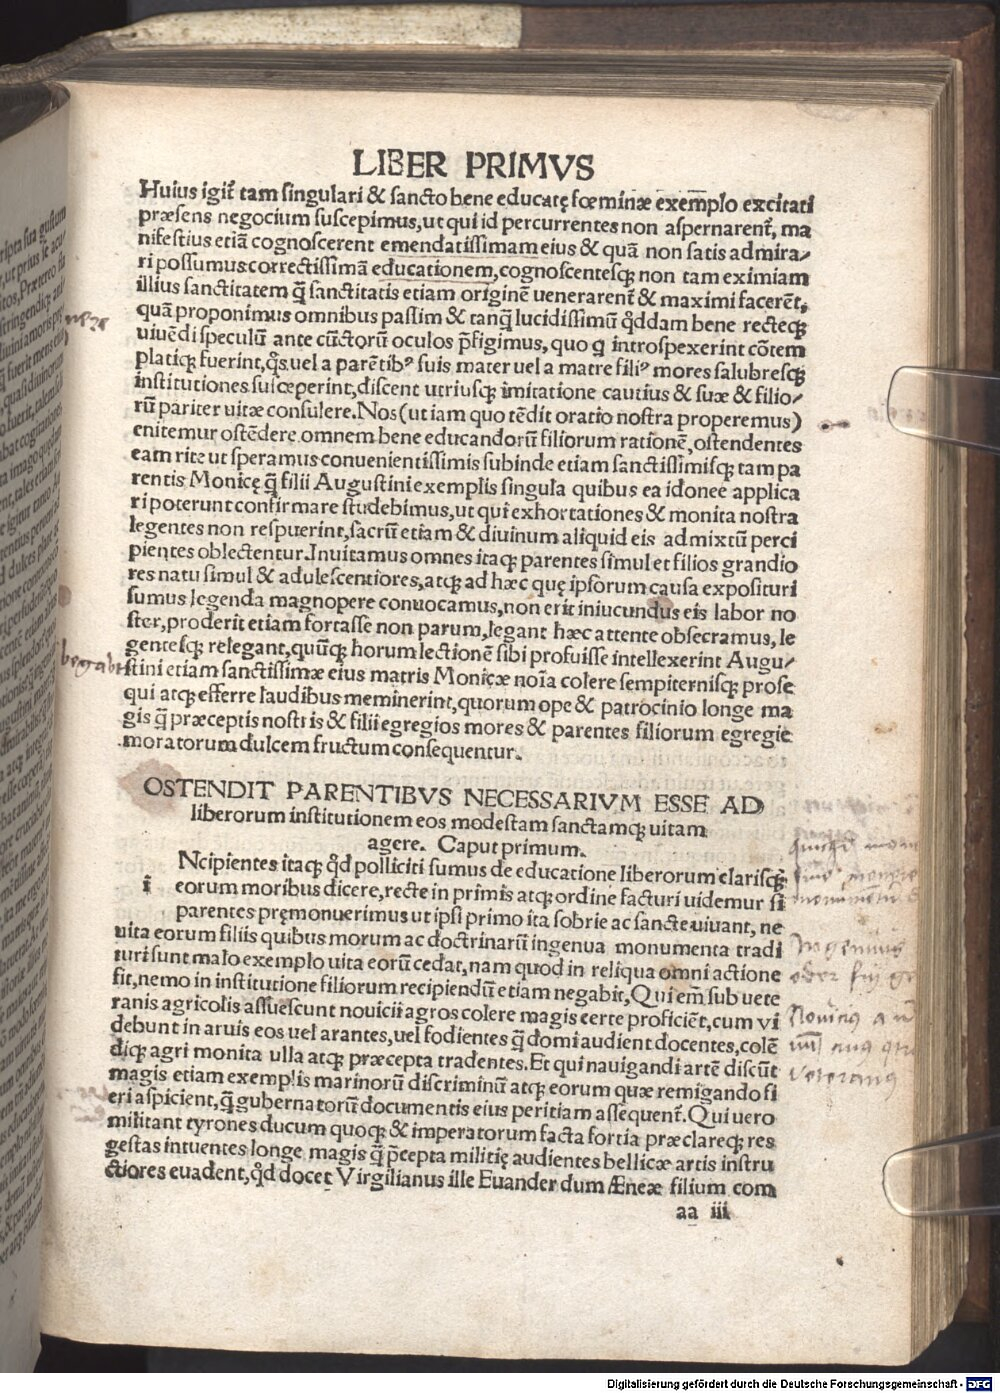 LIBER PRIMVS
Huius igit̃ tam singulari & sancto bene educatę fœminæ exem̃plo excitati
præsens negocium suscepimus, ut qui id percurrentes non aspernarent̃, ma
nifestius etiã cognoscerent emendatissimam eius & quã non satis admira⸗
ri possumus correctissimã educationem, cognoscentesqꝫ non tam eximiam
illius sanctitatem q̃ sanctitatis etiam originẽ uenerarent̃ & maximi facerẽt,
quã proponimus omnibus passim & tanq̃ lucidissimũ qđdam bene recteqꝫ
uiuẽdi speculũ ante cũctorũ oculos p̃figimus, quo q introspexerint cõtem
platiqꝫ fuerint, qđs uel a parẽtibꝰ suis mater uel a matre filiꝰ mores salubresqꝫ
institutiones susceperint, discent utriusqꝫ imitatione cautius & suæ & filio⸗
rũ pariter uitæ consulere. Nos (ut iam quo tẽdit oratio nostra properemus)
enitemur ostẽdere omnem bene educandorũ filiorum rationẽ, ostendentes
eam rite ut speramus conuenientissimis subinde etiam sanctissimisqꝫ tam pa
rentis Monicę q̃ filii Augustini exemplis singula quibus ea idonee applica
ri poterunt confirmare studebimus, ut qui exhortationes & monita nostra
legentes non respuerint, sacrũ etiam & diuinum aliquid eis admixtũ perci
pientes oblectentur. Inuitamus omnes itaqꝫ parentes simul et filios grandio
res natu simul & adulescentiores, atqꝫ ad hæc quę ipsorum causa exposituri
sumus legenda magnopere conuocamus, non erit iniucundus eis labor no
ster, proderit etiam fortasse non parum, legant hæc attente obsecramus, le
gentesqꝫ relegant, quũqꝫ horum lectionẽ sibi profuisse intellexerint Augu⸗
stini etiam sanctissimæ eius matris Monicæ noĩa colere sempiternisqꝫ prose
qui atqꝫ efferre laudibus meminerint, quorum ope & patrocinio longe ma
gis q̃ præceptis nostris & filii egregios mores & parentes filiorum egregie
moratorum dulcem fructum consequentur.
OSTENDIT PARENTIBVS NECESSARIVM ESSE AD
liberorum institutionem eos modestam sanctamqꝫ uitam
agere. Caput primum.
i Ncipientes itaqꝫ qđ polliciti sumus de educatione liberorum clarisqꝫ
eorum moribus dicere, recte in primis atqꝫ ordine facturi uidemur si
parentes pręmonuerimus ut ipsi primo ita sobrie ac sancte uiuant, ne
uita eorum filiis quibus morum ac doctrinarũ ingenua monumenta tradi
turi sunt malo exemplo uita eorũ cedat, nam quod in reliqua omni actione
fit, nemo in institutione filiorum recipiendũ etiam negabit, Qui em̃ sub uete
ranis agricolis assuescunt nouicii agros colere magis certe proficiẽt, cum vi
debunt in aruis eos uel arantes, uel fodientes q̃ domi audient docentes, colẽ
diqꝫ agri monita ulla atqꝫ præcepta tradentes. Et qui nauigandi artẽ discũt
magis etiam exemplis marinorũ discriminũ atqꝫ eorum quæ remigando fi
eri aspicient, q̃ gubernatorũ documentis eius peritiam assequent̃. Qui uero
militant tyrones ducum quoqꝫ & imperatorum facta fortia præclareqꝫ res
gestas intuentes longe magis q̃ p̃cepta militię audientes bellicæ artis instru
ctiores euadent, qđ docet Virgilianus ille Euander dum Æneæ filium com
aa iii
Ingenuus
oder
Novicius
veteranus
Digitalisierung gefördert durch die Deutsche Forschungsgemeinschaft - DFG